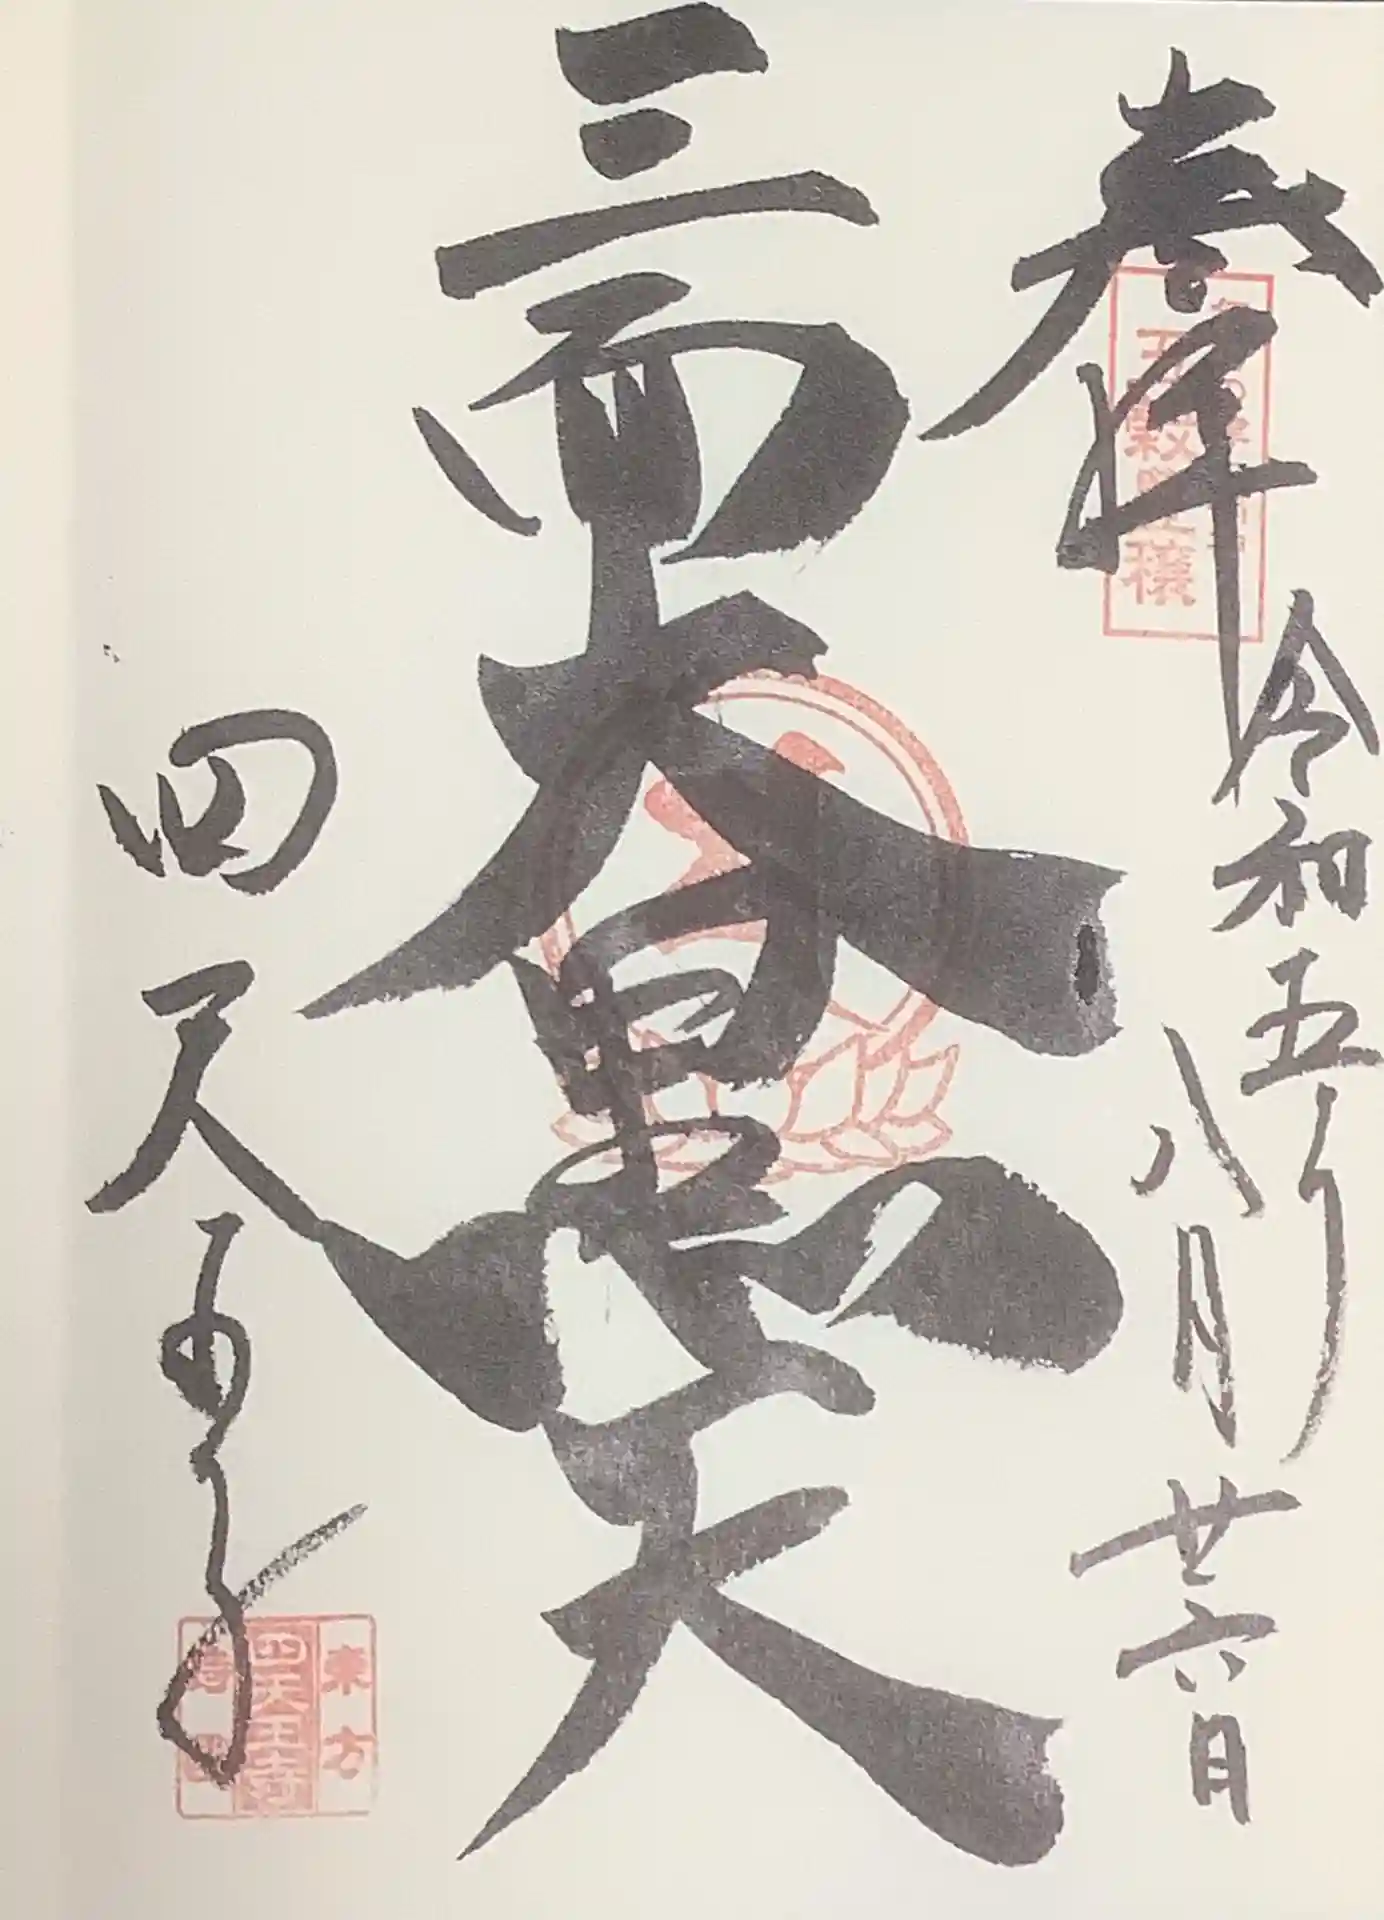 奉拝
令和五年
八月廿六日
三面大黒天
四天王寺
五穀豊穣
東方
四天王寺